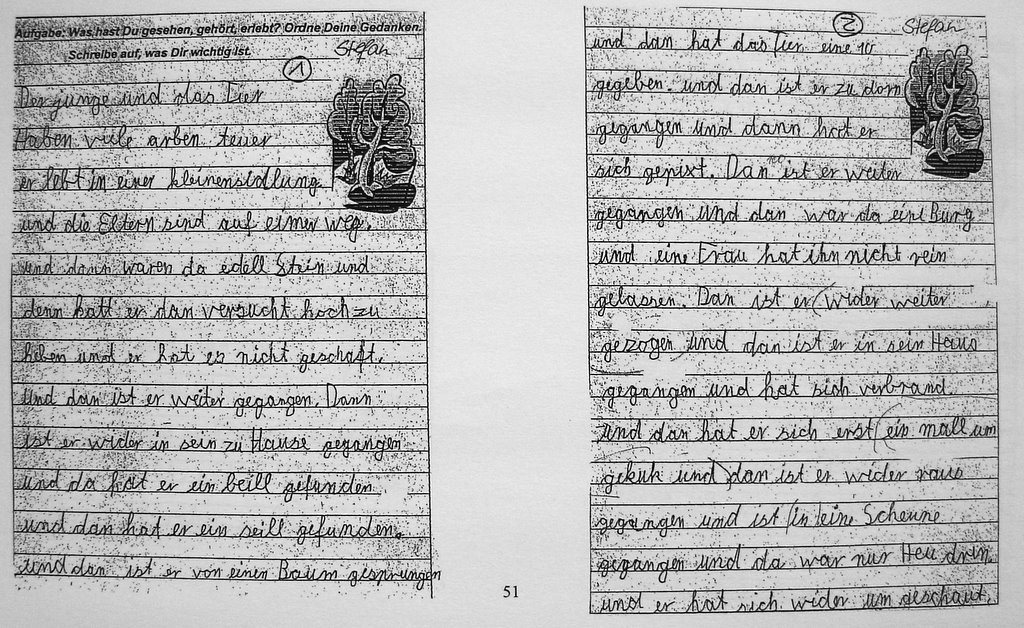 Aufgabe: Was hast Du gesehen, gehört, erlebt? Ordne Deine Gedanken.
Schreibe auf, was Dir wichtig ist.
Stefan
1
Der junge und das Tier
Haben viele arben teuer
er lebt in einer kleinensidlung
und die Eltern sind auf eimer weg.
und dann waren da edell Stein und
denn hatt er dan versucht hoch zu
heben und er hat es nicht geschaft.
und dan ist er weiter gegangen. Dann
ist er wider in sein zu Hause gegangen
und da hat er ein beill gefunden
und dan hat er ein seill gefunden.
und dan ist er von einen Baum gesprungen
51
2
Stefan
und dan hat das Tier eine 10
gegeben. und dan ist er zu dorn
gegangen und dann hat er
sich gepixt. Dan ist er weiter
gegangen und dan war da eine Burg
und eine Frau hat ihn nicht rein
gelassen. Dan ist er (wider weiter
gezogen und dan ist er in sein Haus
gegangen und hat sich verbrand.
und dan hat er sich erst (ein mall um
gekuk und dan ist er wider raus
gegangen und ist in eine Scheune
gegangen und da war nur Heu drin.
und er hat sich wider um geschaut.